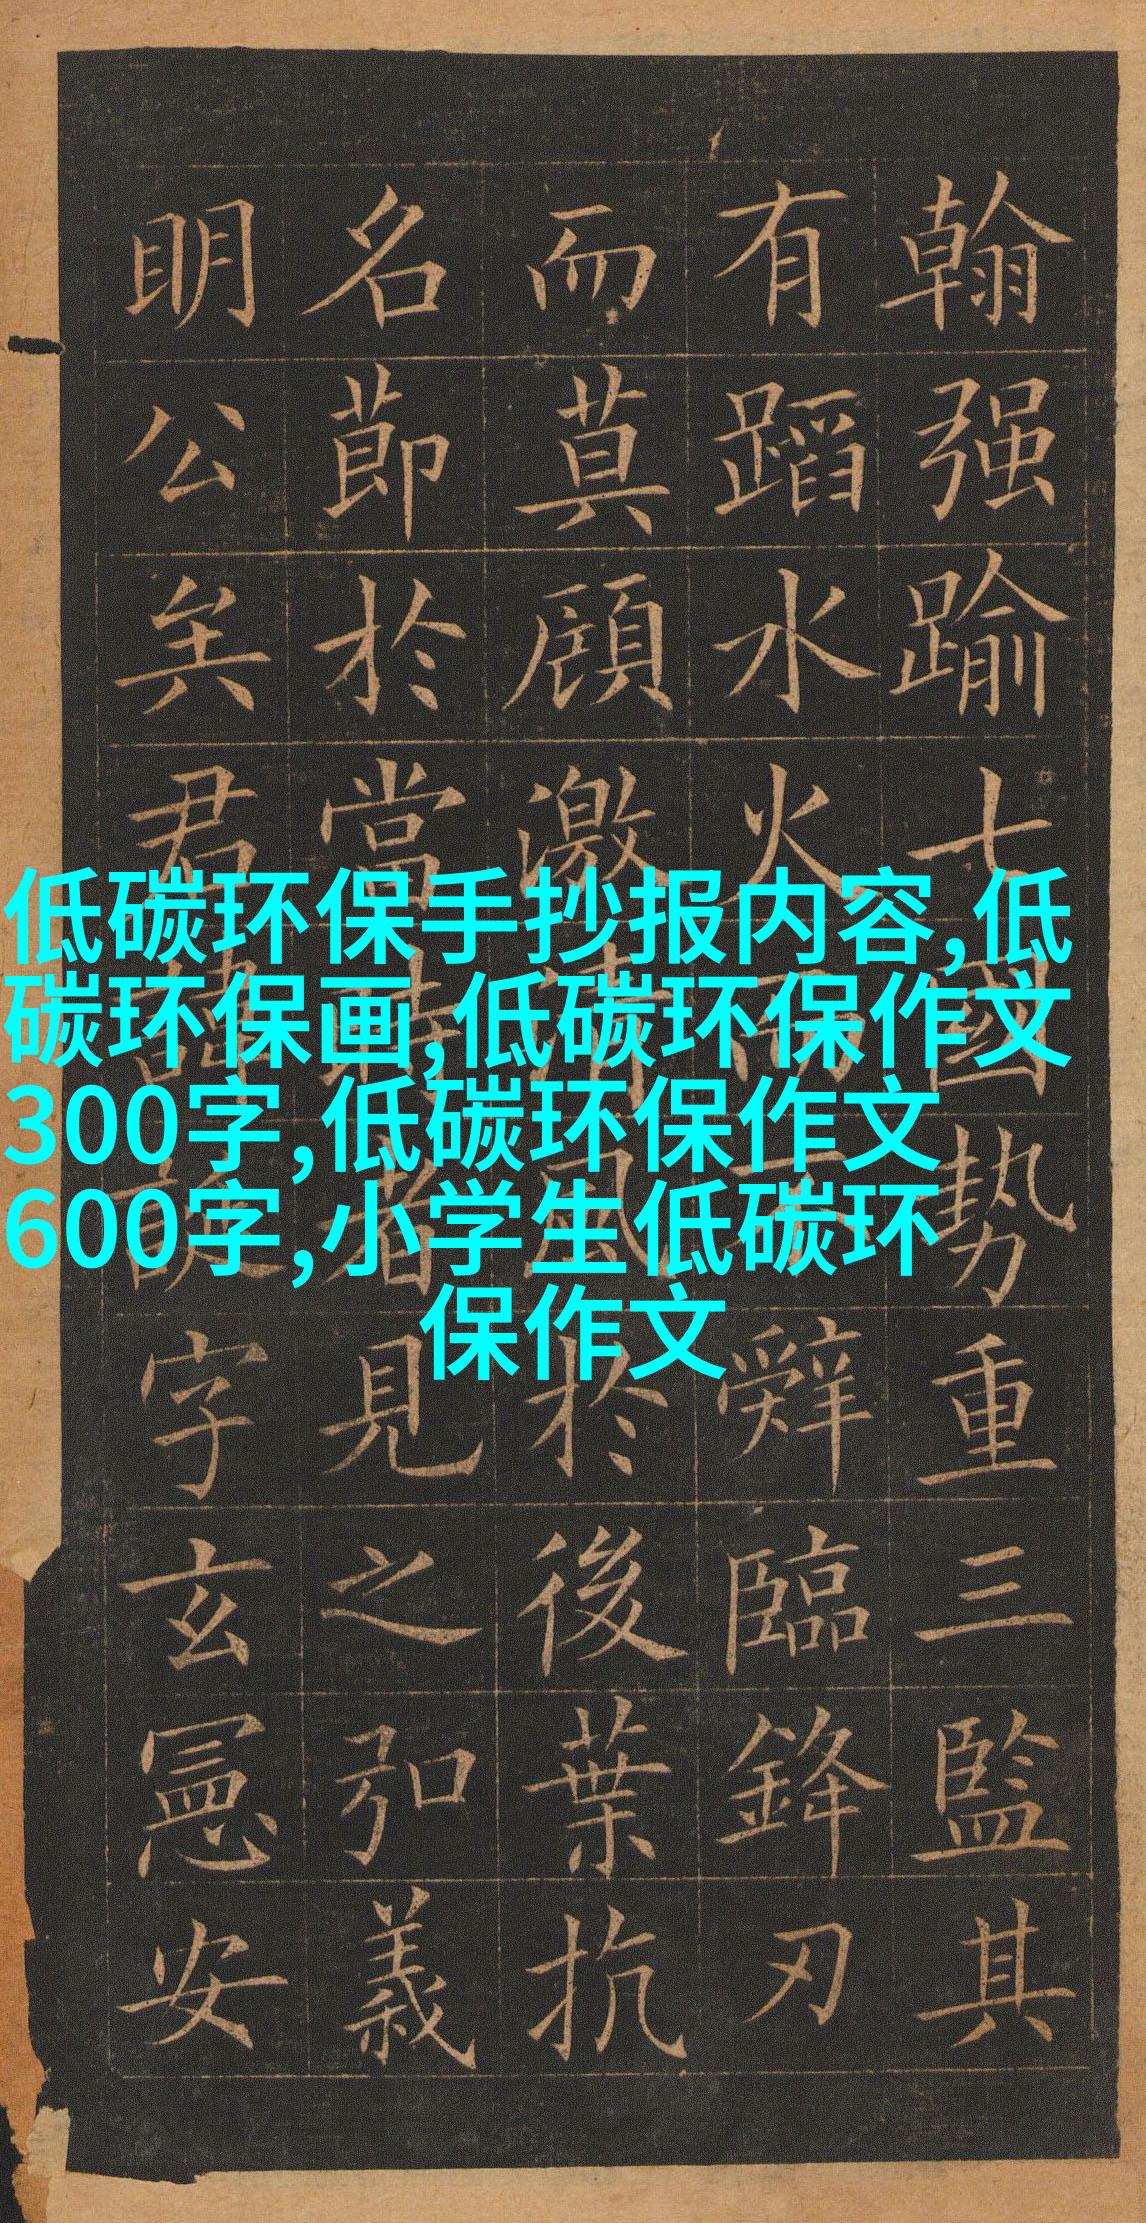 低碳环保手抄报内容,低
碳环保画,低碳环保作文
300字,低碳环保作文
600字,小学生低碳环
保作文
翰强踰七國勢重三監其
有蹈水火而辭臨鋒刃
而莫顧激清風於後葉抗
名節於當時者見之弘義
明公矣君諱誕字玄憲安